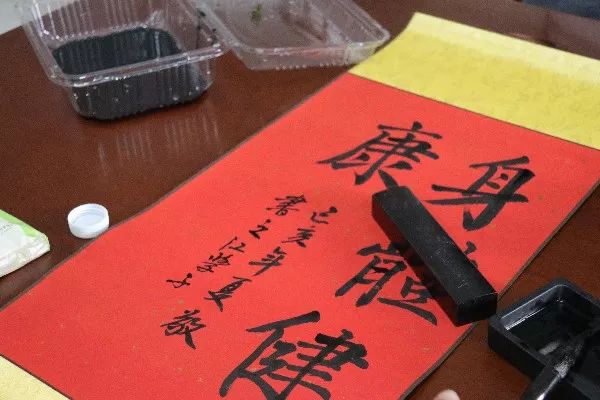 身體健
康
己亥年夏敬
書之江學子